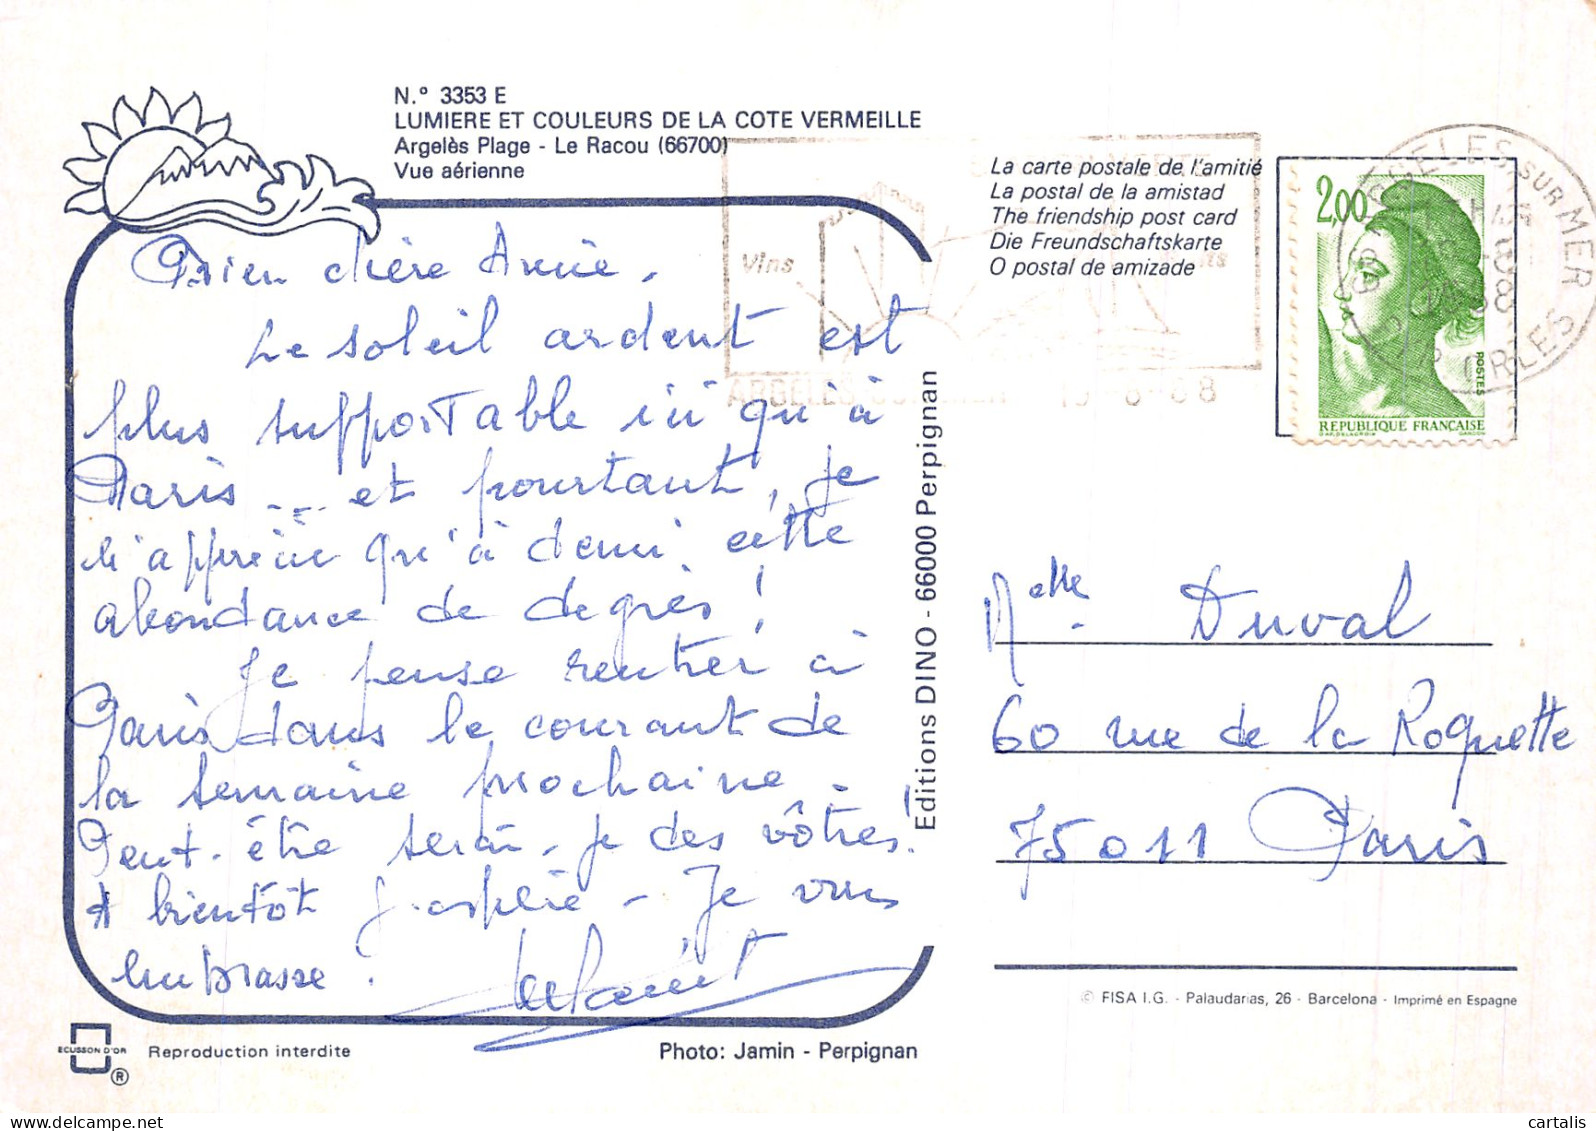 N.º 3353 E
LUMIERE ET COULEURS DE LA COTE VERMEILLE
Argelès Plage - Le Racou (66700)
Vue aérienne
Bien chère Annie,
Le soleil ardent est
plus supportable ici qu'à
Paris ... et pourtant, je
n'apprécie qu'à demi cette
abondance de degrés !
Je pense rentrer à
Paris dans le courant de
la semaine prochaine -
Peut-être serai-je des vôtres !
A bientôt j'espère - Je vous
embrasse.
ECUSSON D'OR
®
Reproduction interdite
Photo: Jamin - Perpignan
Editions DINO - 66000 Perpignan
La carte postale de l'amitié
La postal de la amistad
The friendship post card
Die Freundschaftskarte
O postal de amizade
vins
ARGELES SUR MER
2,00
POSTES
REPUBLIQUE FRANÇAISE
ARGELES SUR MER
PYR. ORLES
Melle Duval
60 rue de la Roquette
75011 Paris
© FISA I.G. - Palaudarias, 26 - Barcelona - Imprimé en Espagne
cartalis